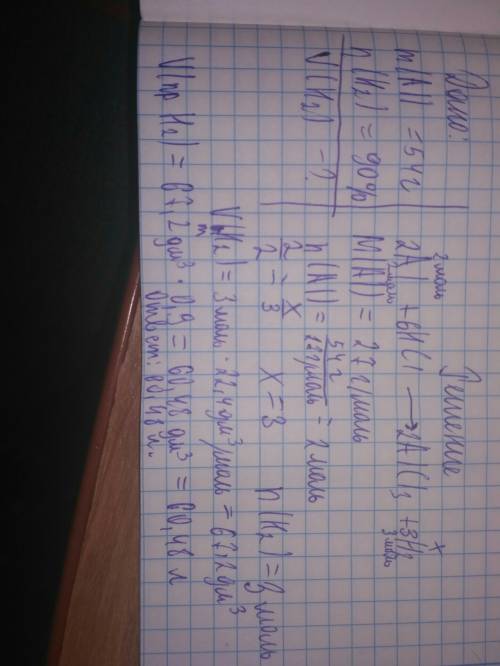 Дано:
m(Al) = 54г
η(H₂) = 90%
V(H₂) - ?
Решение
2 моль x
2Al + 6HCl → 2AlCl₃ + 3H₂
2 моль 3 моль
M(Al) = 27 г/моль
n(Al) = 54 г / 27 г/моль = 2 моль
2/2 = x/3 x = 3 n(H₂) = 3 моль
V(H₂) = 3 моль · 22,4 дм³/моль = 67,2 дм³
m
V(пр H₂) = 67,2 дм³ · 0,9 = 60,48 дм³ = 60,48 л
Ответ: 60,48 л.